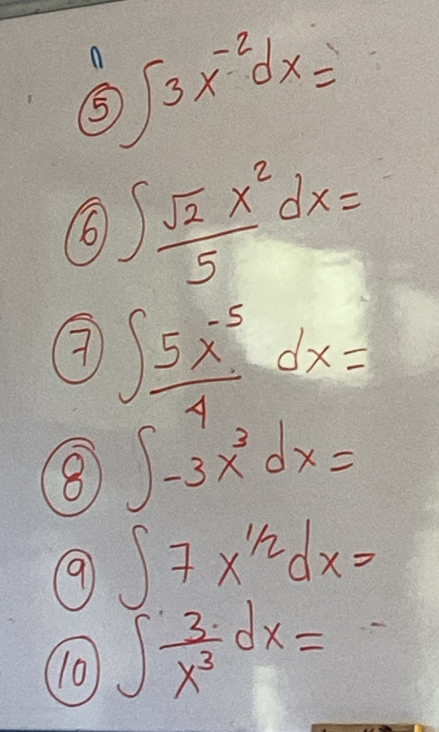 ⑤ ∫ 3x⁻² dx =
⑥ ∫ √2 x² / 5 dx =
⑦ ∫ 5x⁻⁵ / 4 dx =
⑧ ∫ -3x³ dx =
⑨ ∫ 7x^(1/2) dx =
⑩ ∫ 3 / x³ dx =